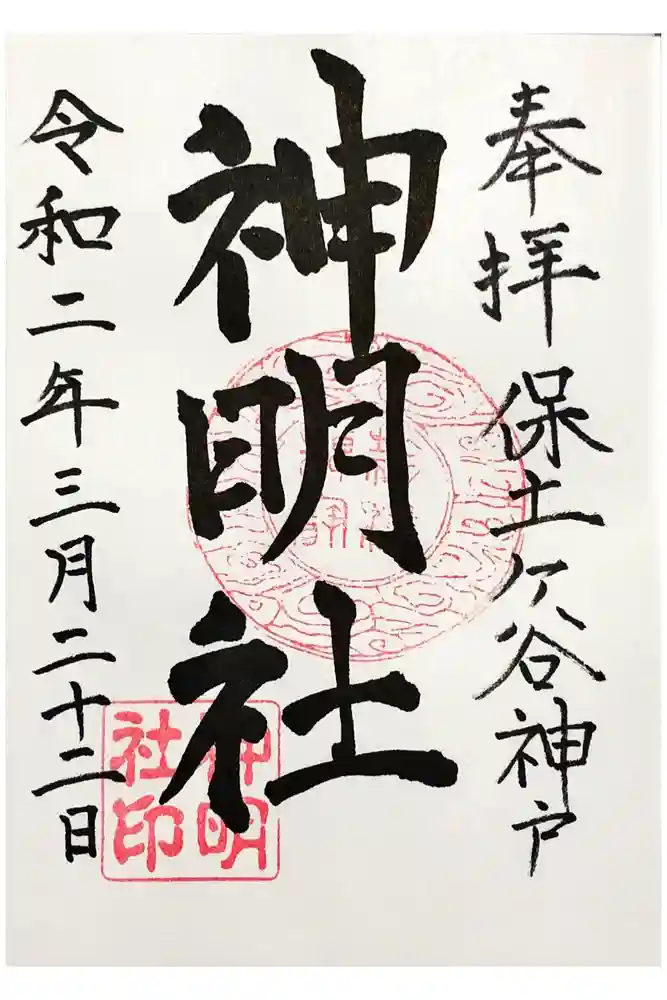 奉拝 保土ケ谷神戸
神明社
令和二年三月二十二日
神明
社印